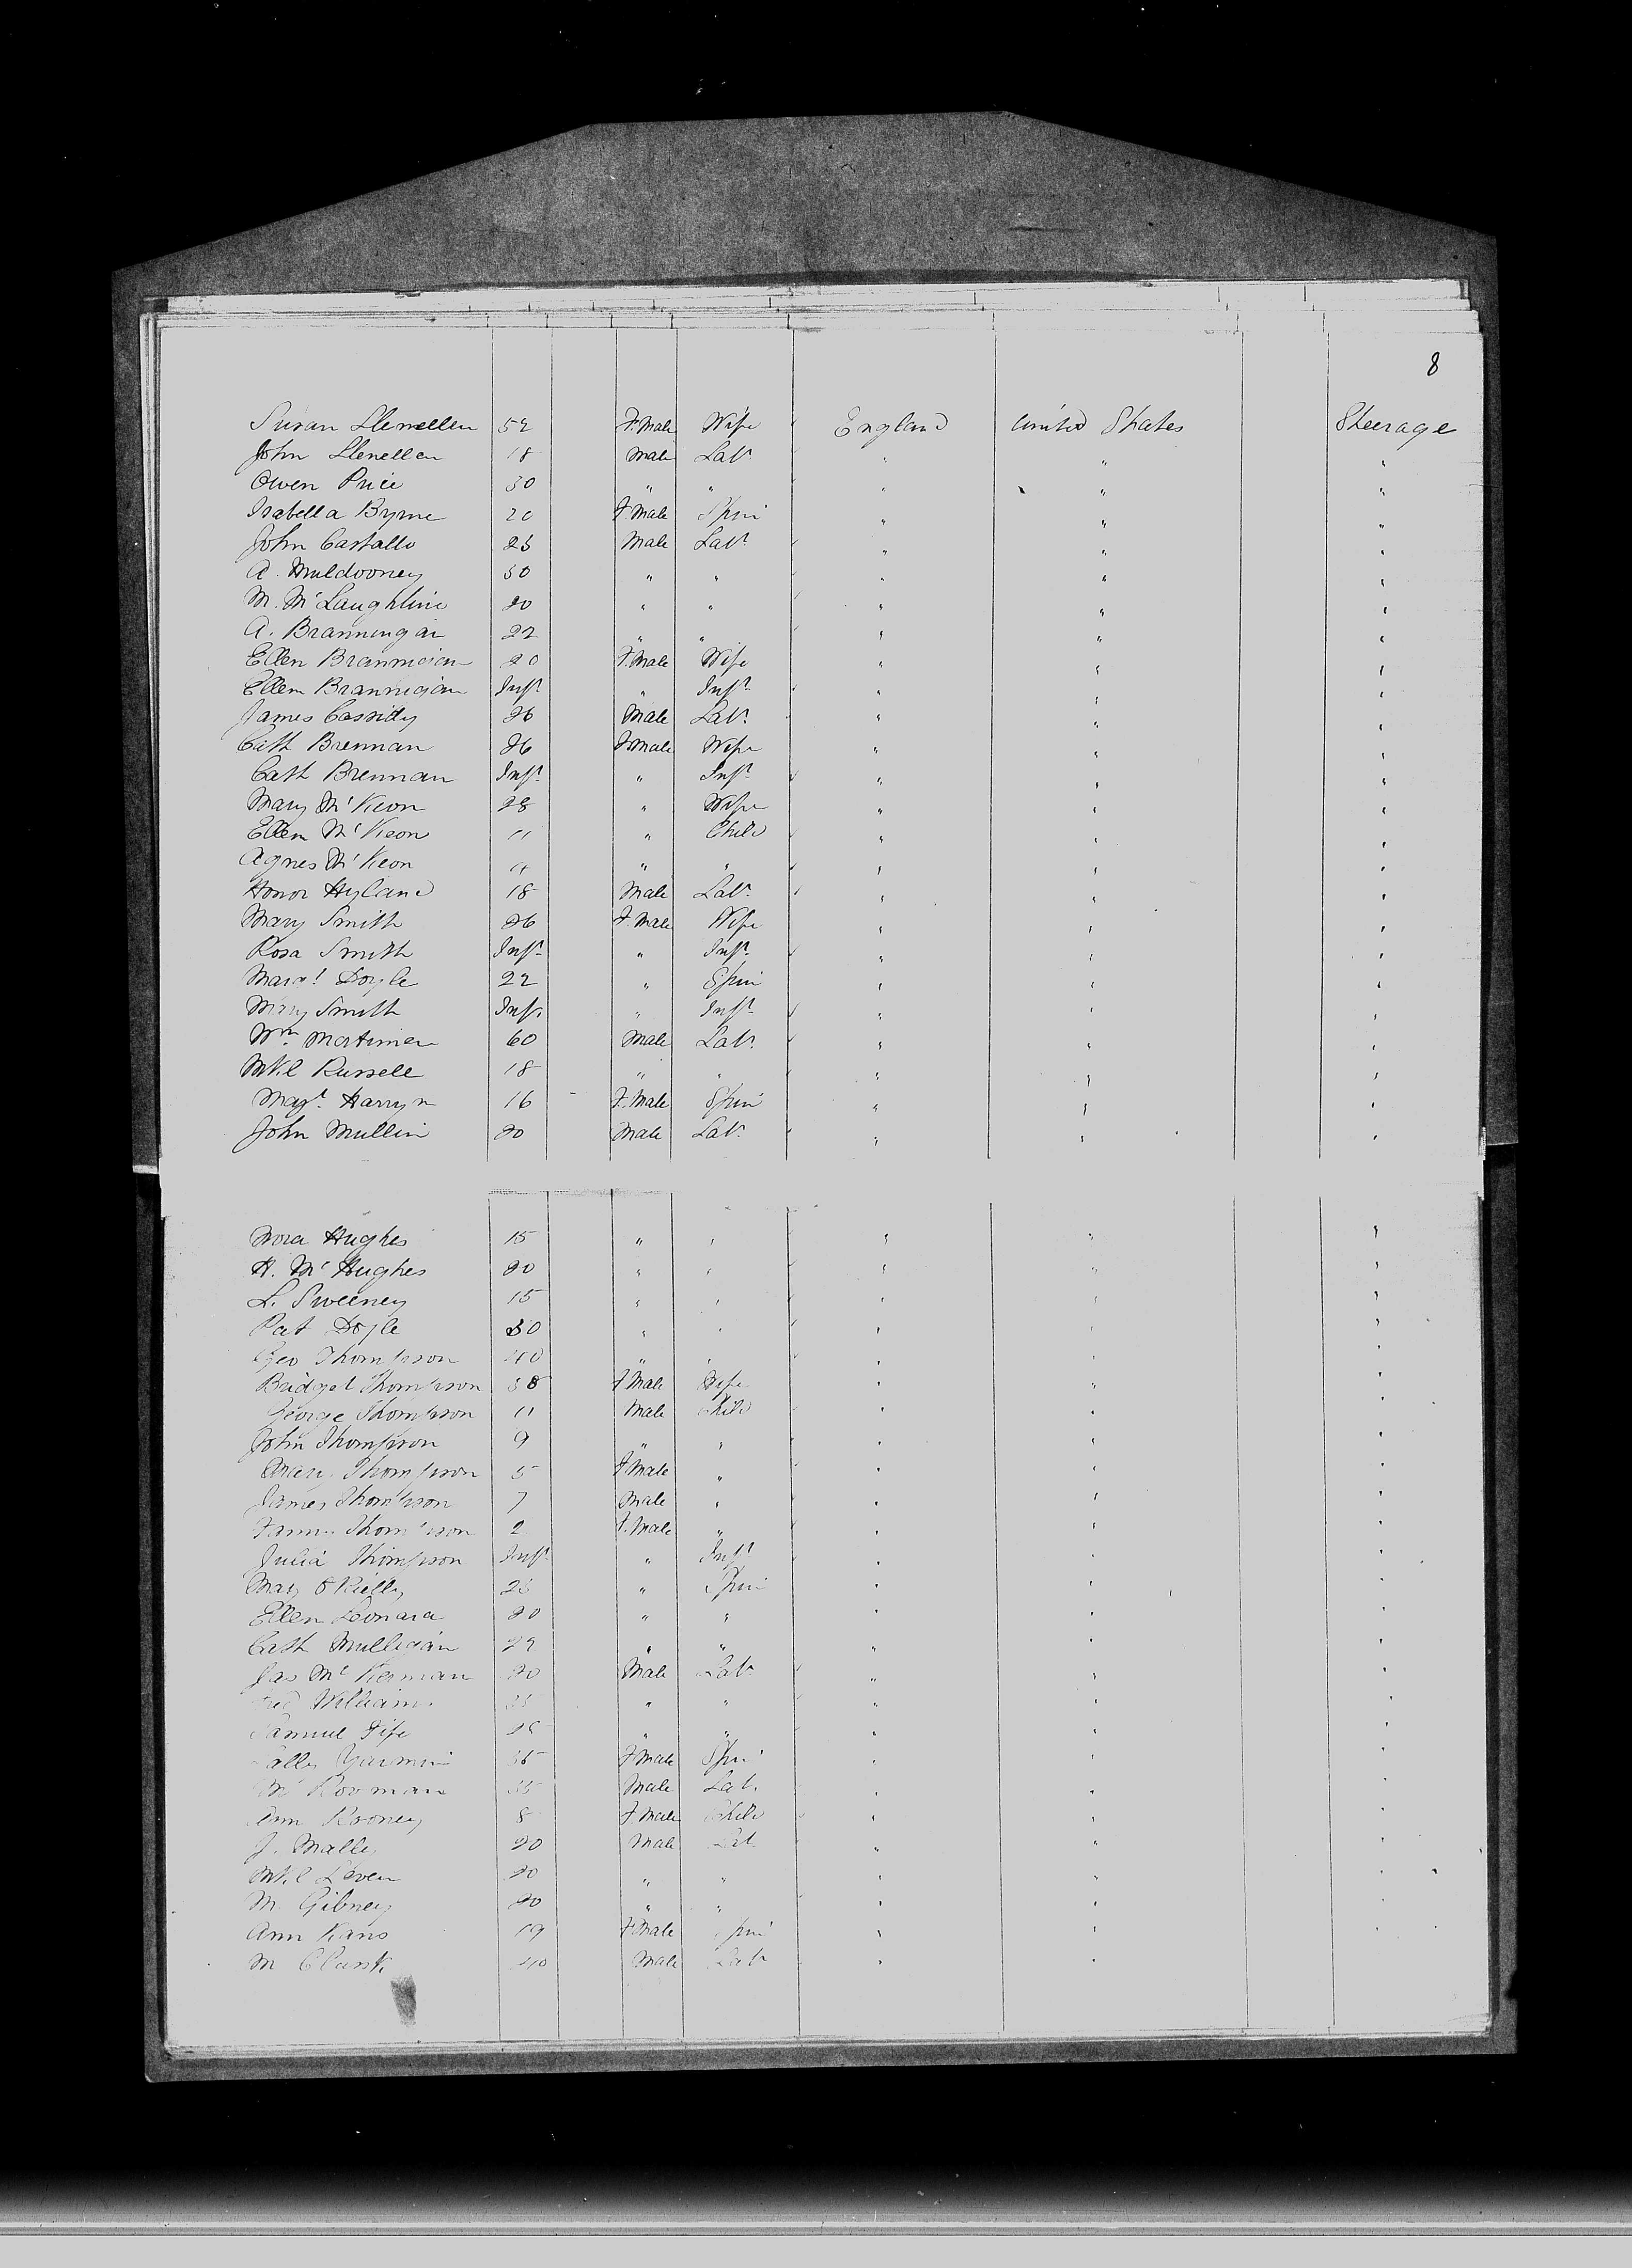 8
Susan Llewellen 52 F.Male Wife England United States Steerage
John Llewellen 18 Male Labr " " "
Owen Price 30 " " " " "
Isabella Byrne 20 F.Male Spin " " "
John Castallo 25 Male Labr " " "
A. Muldooney 30 " " " " "
M. McLaughline 20 " " " " "
A. Branningan 22 " " " " "
Ellen Brannigan 20 F.Male Wife " " "
Ellen Brannigan Inft " Inft " " "
James Cassidy 26 Male Labr " " "
Cath Brennan 26 F.Male Wife " " "
Cath Brennan Inft " Inft " " "
Mary McKeon 28 " Wife " " "
Ellen McKeon 11 " Child " " "
Agnes McKeon " " " " "
Honor Hyland 18 Male Labr " " "
Mary Smith 26 F.Male Wife " " "
Rosa Smith Inft " Inft " " "
Margt Doyle 22 " Spin " " "
Mary Smith Inft " Inft " " "
Wm Mortimer 60 Male Labr " " "
Mkl Russell 18 " " " " "
Magt 16 F.Male Spin " " "
John Mullin 20 Male Labr " " "
Nora Hughes 15 " " " " "
H. McHughes 20 " " " " "
L. Sweeney 15 " " " " "
Pat Doyle 30 " " " " "
Geo Thompson 40 " " " " "
Bridget Thompson 38 F.Male Wife " " "
George Thompson 11 Male Child " " "
John Thompson 9 " " " " "
Mary Thompson 5 F.Male " " " "
James Thompson 7 Male " " " "
Thompson 2 F.Male " " " "
Julia Thompson Inft " Inft " " "
Mary O'Rielly " Spin " " "
Ellen Leonard 20 " " " " "
Cath Mulligan " " " " "
Jas McKernan 20 Male Labr " " "
Williams " " " " "
Samuel Fife " " " " "
F.Male Spin " " "
35 Male Lab. " " "
Ann Rooney 8 F.Male Child " " "
J. 20 Male Lab " " "
Mkl 20 " " " " "
M. Gibney 20 " " " " "
Ann Kans 19 F.Male Spin " " "
M Clusk 40 Male Labr " "